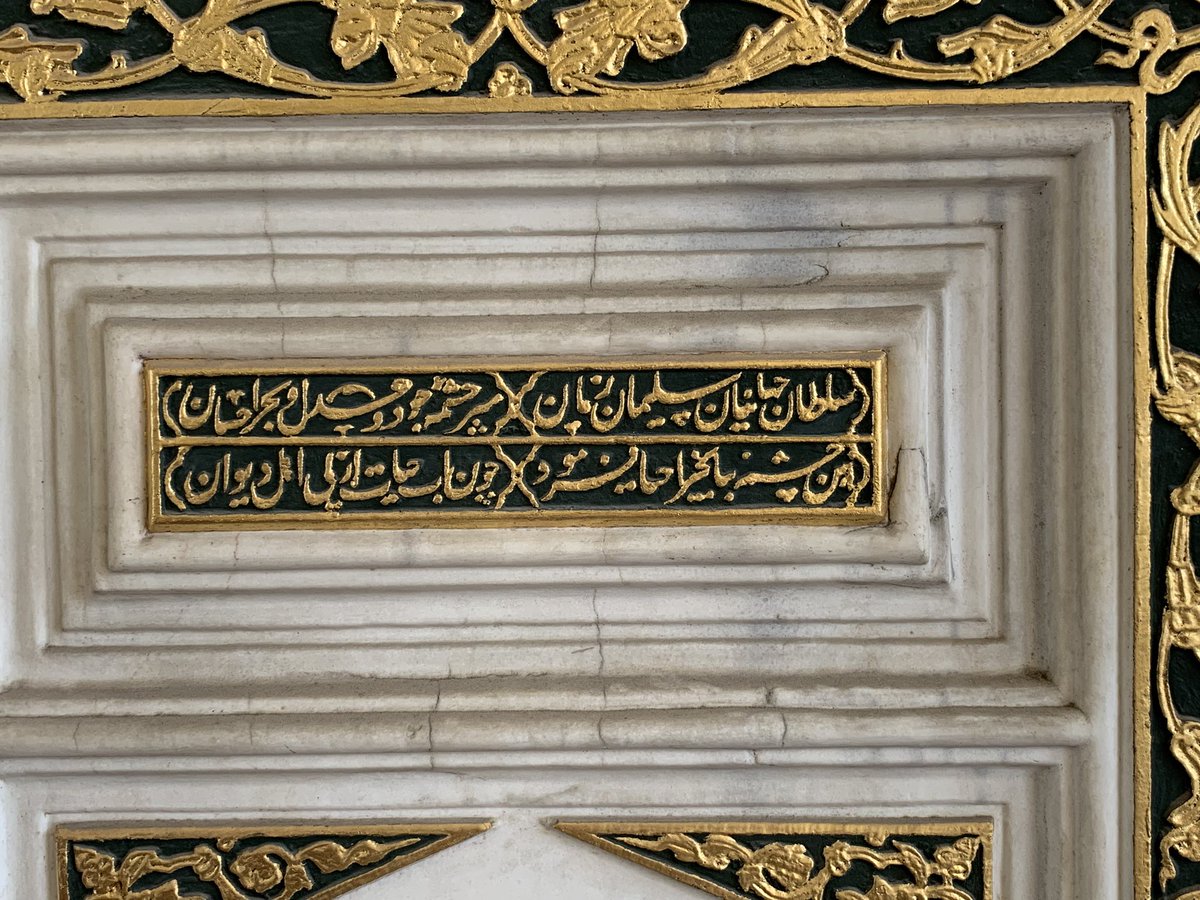 سلطان جهانیان سلیمان زمان سرچشمه جود و عدل و بحر احسان
این چشمه بنا بخیر احیا فرمود چون آب حیات از پی اهل دیوان